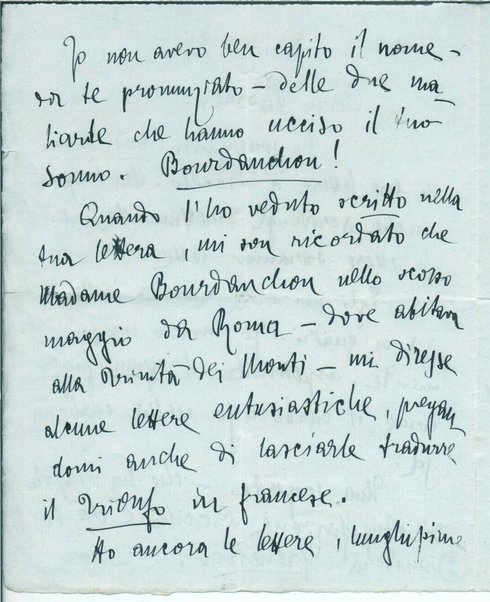 Io non avevo ben capito il nome –
da te pronunziato – delle due ma-
liarde che hanno ucciso il tuo
sonno. Bourdanchon!
Quando l'ho veduto scritto nella
tua lettera, mi son ricordato che
Madame Bourdanchon nello scorso
maggio da Roma – dove abitava
alla Trinità dei Monti – mi diresse
alcune lettere entusiastiche, pregan
domi anche di lasciarle tradurre
il Trionfo in francese.
Ho ancora le lettere, lunghissime